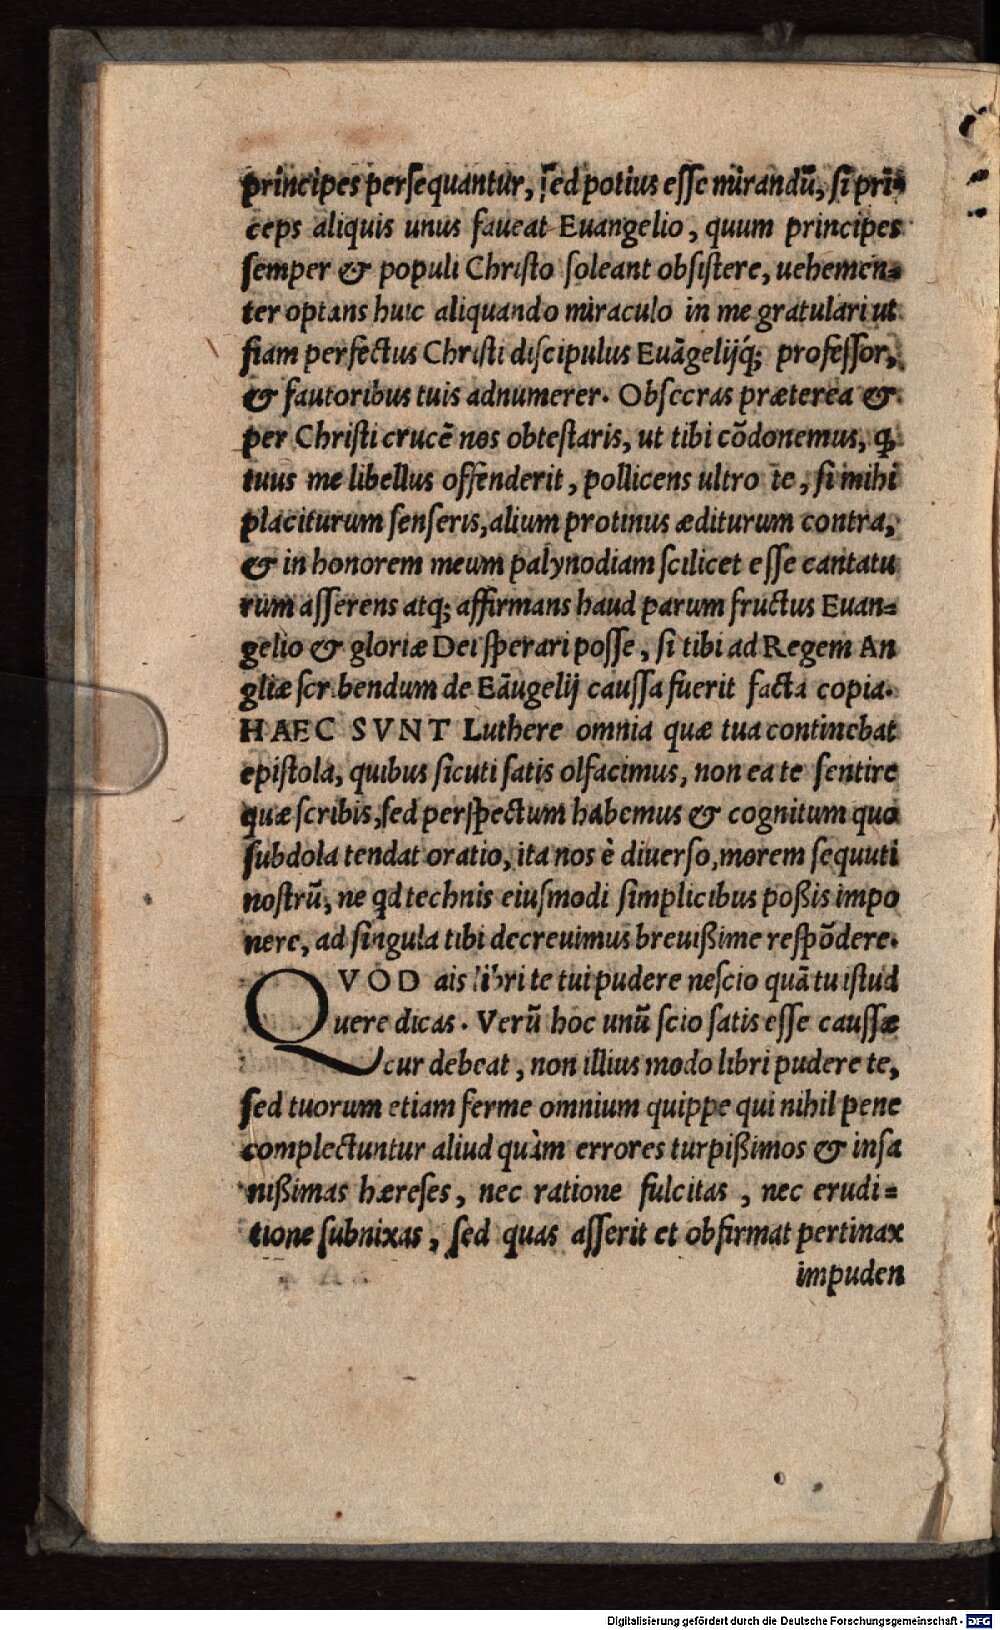 principes persequantur, sed potius esse mirandũ, si prin
ceps aliquis unus faueat Euangelio, quum principes
semper & populi Christo soleant obsistere, uehemen=
ter optans huic aliquando miraculo in me gratulari ut
fiam perfectus Christi discipulus Euãgelijq́; professor,
& fautoribus tuis adnumerer. Obsecras præterea &
per Christi crucẽ nos obtestaris, ut tibi cõdonemus, ꝙ
tuus me libellus offenderit, pollicens ultro te, si mihi
placiturum senseris, alium protinus æditurum contra,
& in honorem meum palynodiam scilicet esse cantatu
rum asserens atq; affirmans haud parum fructus Euan=
gelio & gloriæ Dei sperari posse, si tibi ad Regem An
gliæ scribendum de Eãugelij caussa fuerit facta copia.
HAEC SVNT Luthere omnia quæ tua continebat
epistola, quibus sicuti satis olfacimus, non ea te sentire
quæ scribis, sed perspectum habemus & cognitum quo
subdola tendat oratio, ita nos è diuerso, morem sequuti
nostrũ, ne qd technis eiusmodi simplicibus poßis impo
nere, ad singula tibi decreuimus breuißime respõdere.
QVOD ais libri te tui pudere nescio quã tu istud
uere dicas. Verũ hoc unũ scio satis esse caussæ
cur debeat, non illius modo libri pudere te,
sed tuorum etiam ferme omnium quippe qui nihil pene
complectuntur aliud quàm errores turpißimos & insa
nißimas hæreses, nec ratione fulcitas, nec erudi=
tione subnixas, sed quas asserit et obfirmat pertinax
impuden
Digitalisierung gefördert durch die Deutsche Forschungsgemeinschaft - DFG